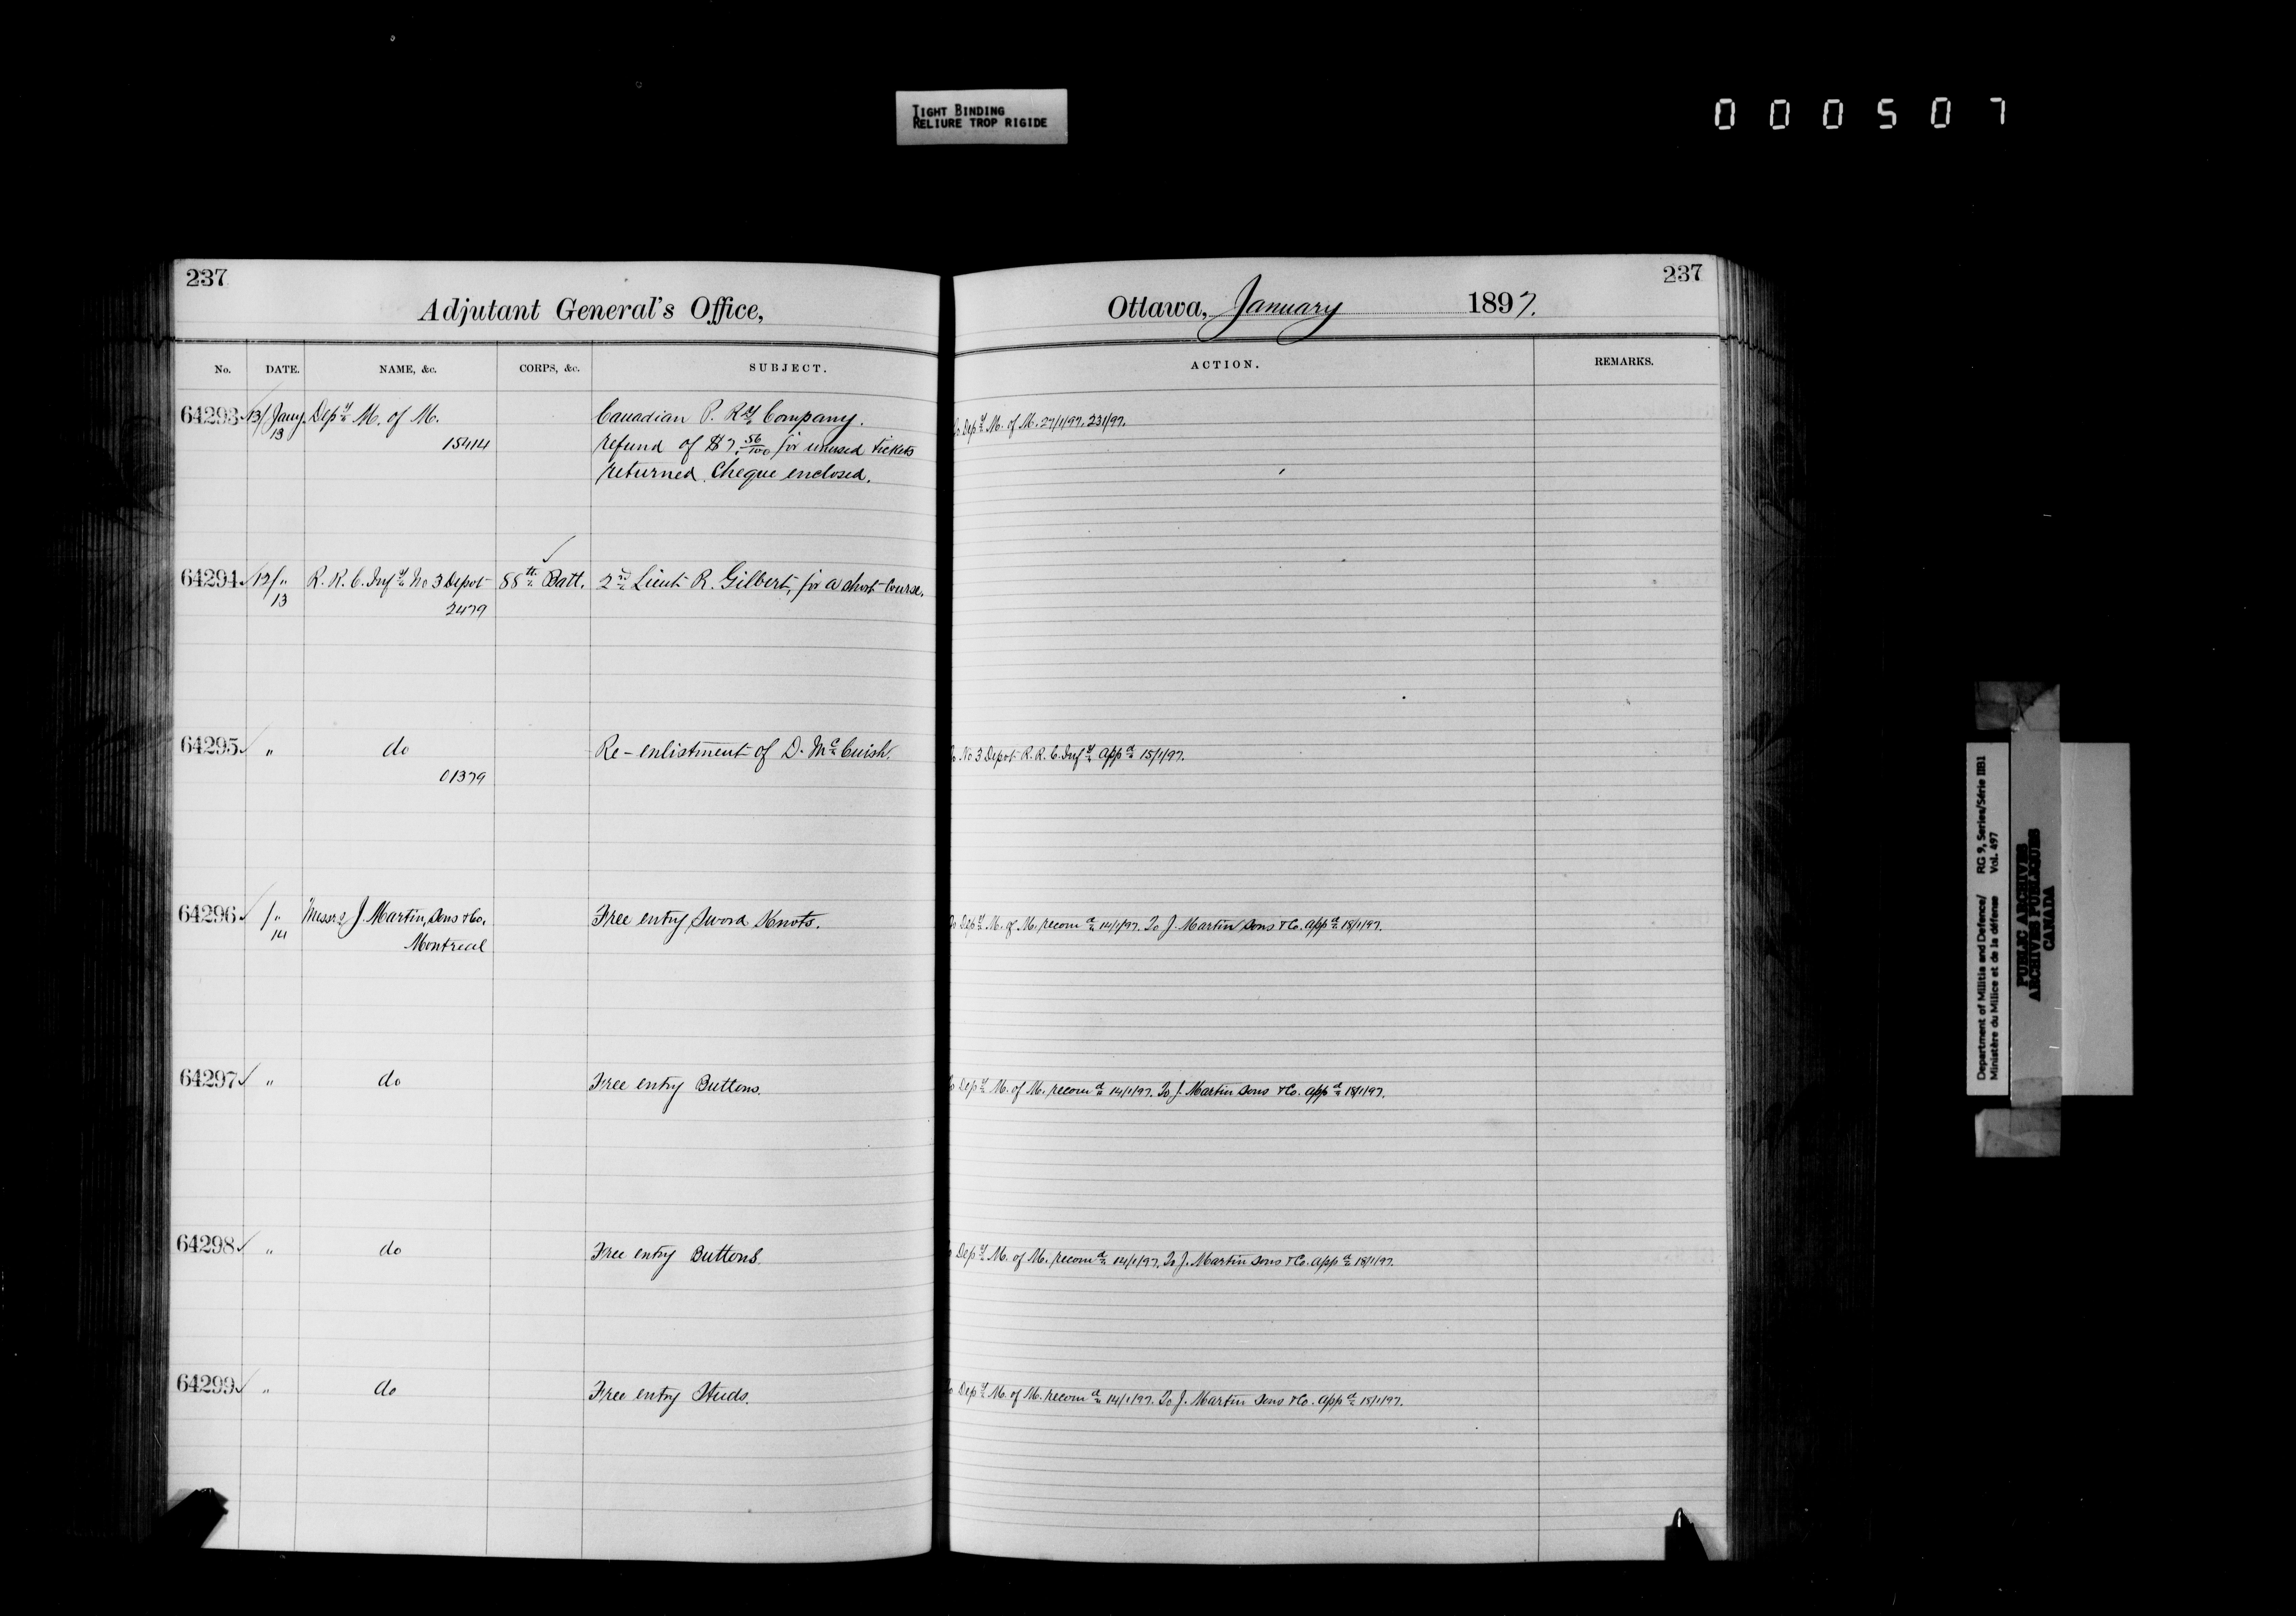 TIGHT BINDING
RELIURE TROP RIGIDE
000507
237
Adjutant General's Office,
No. DATE. NAME, &c. CORPS, &c. SUBJECT.
64293 13/Jany. Depy M. of M. Canadian P. Ry Company.
13 15414 refund of $7.56/100 for unused tickets
returned. Cheque enclosed.
64294 12/" R. R. C. Infy No 3 Depot 88th Batt. 2nd Lieut R. Gilbert, for a short course.
13 2479
64295 " do Re-enlistment of D. McCuish.
01379
64296 /" Messrs J. Martin, Sons & Co. Free entry Sword Knots.
14 Montreal
64297 " do Free entry Buttons.
64298 " do Free entry Buttons.
64299 " do Free entry Studs.
237
Ottawa, January 1897.
ACTION. REMARKS.
To Depy M. of M. 27/1/97. 23/1/97.
To No 3 Depot R. R. C. Infy appd 15/1/97.
To Depy M. of M. recomd 14/1/97. To J. Martin Sons & Co. appd 18/1/97.
To Depy M. of M. recomd 14/1/97. To J. Martin Sons & Co. appd 18/1/97.
To Depy M. of M. recomd 14/1/97. To J. Martin Sons & Co. appd 18/1/97.
To Depy M. of M. recomd 14/1/97. To J. Martin Sons & Co. appd 18/1/97.
Department of Militia and Defence/ RG 9, Series/Série IIB1
Ministère du Milice et de la défense Vol. 497
PUBLIC ARCHIVES
ARCHIVES PUBLIQUES
CANADA